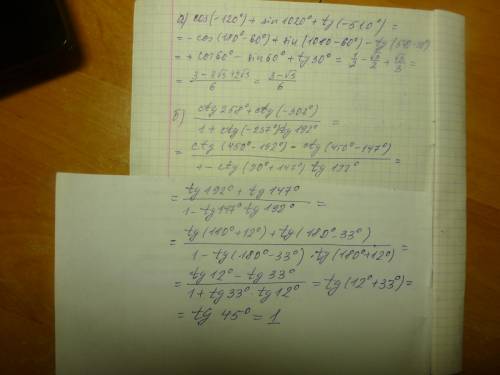 а) cos(-120°) + sin 1020° + tg(-510°) =
= - cos(180° - 60°) + sin(1080-60°) - tg(510-30°)
= + cos 60° - sin 60° + tg 30° = 1/2 - √3/2 + √3/3 =
= (3-3√3+2√3)/6 = (3-√3)/6
б) (ctg 258° + ctg(-303°))/(1 + ctg(-237°)tg 192°) =
= (ctg(450°-192°) - ctg(450°-147°))/(1 - ctg(90°+147°) tg 192°) =
= (tg 192° + tg 147°)/(1 - tg 147° tg 192°) =
= (tg(180°+12°) + tg(180°-33°))/(1 - tg(180°-33°)·tg(180°+12°)) =
= (tg 12° - tg 33°)/(1 + tg 33° tg 12°) = tg(12°+33°) =
= tg 45° = 1